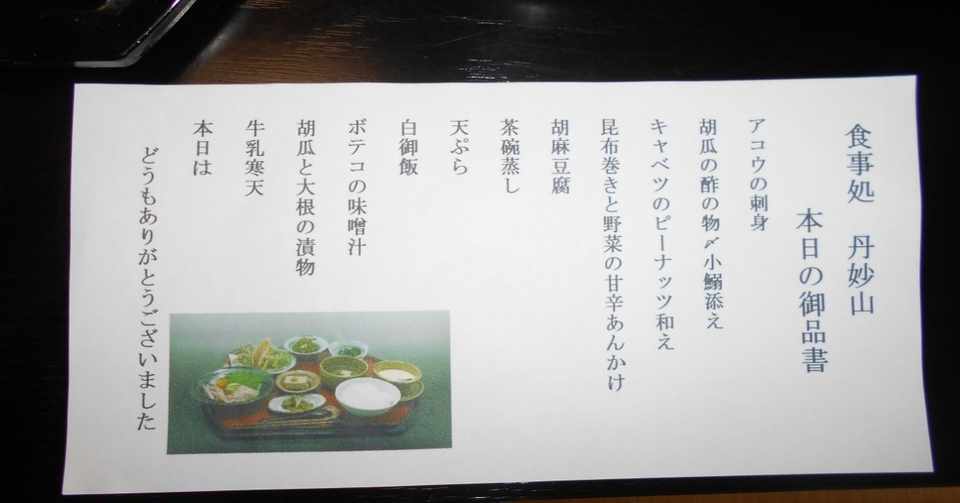 食事処　丹妙山
本日の御品書
アコウの刺身
胡瓜の酢の物〆小鰯添え
キャベツのピーナッツ和え
昆布巻きと野菜の甘辛あんかけ
胡麻豆腐
茶碗蒸し
天ぷら
白御飯
ボテコの味噌汁
胡瓜と大根の漬物
牛乳寒天
本日は
どうもありがとうございました